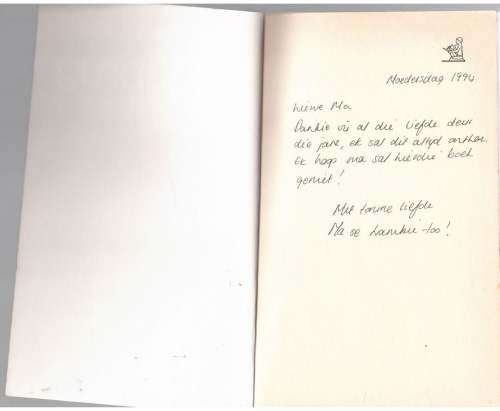 Moedersdag 1994
Liewe Ma
Dankie vir al die liefde deur
die jare, ek sal dit altyd onthou.
Ek hoop ma sal hierdie boek
geniet!
Met tonne liefde
Ma se -too!